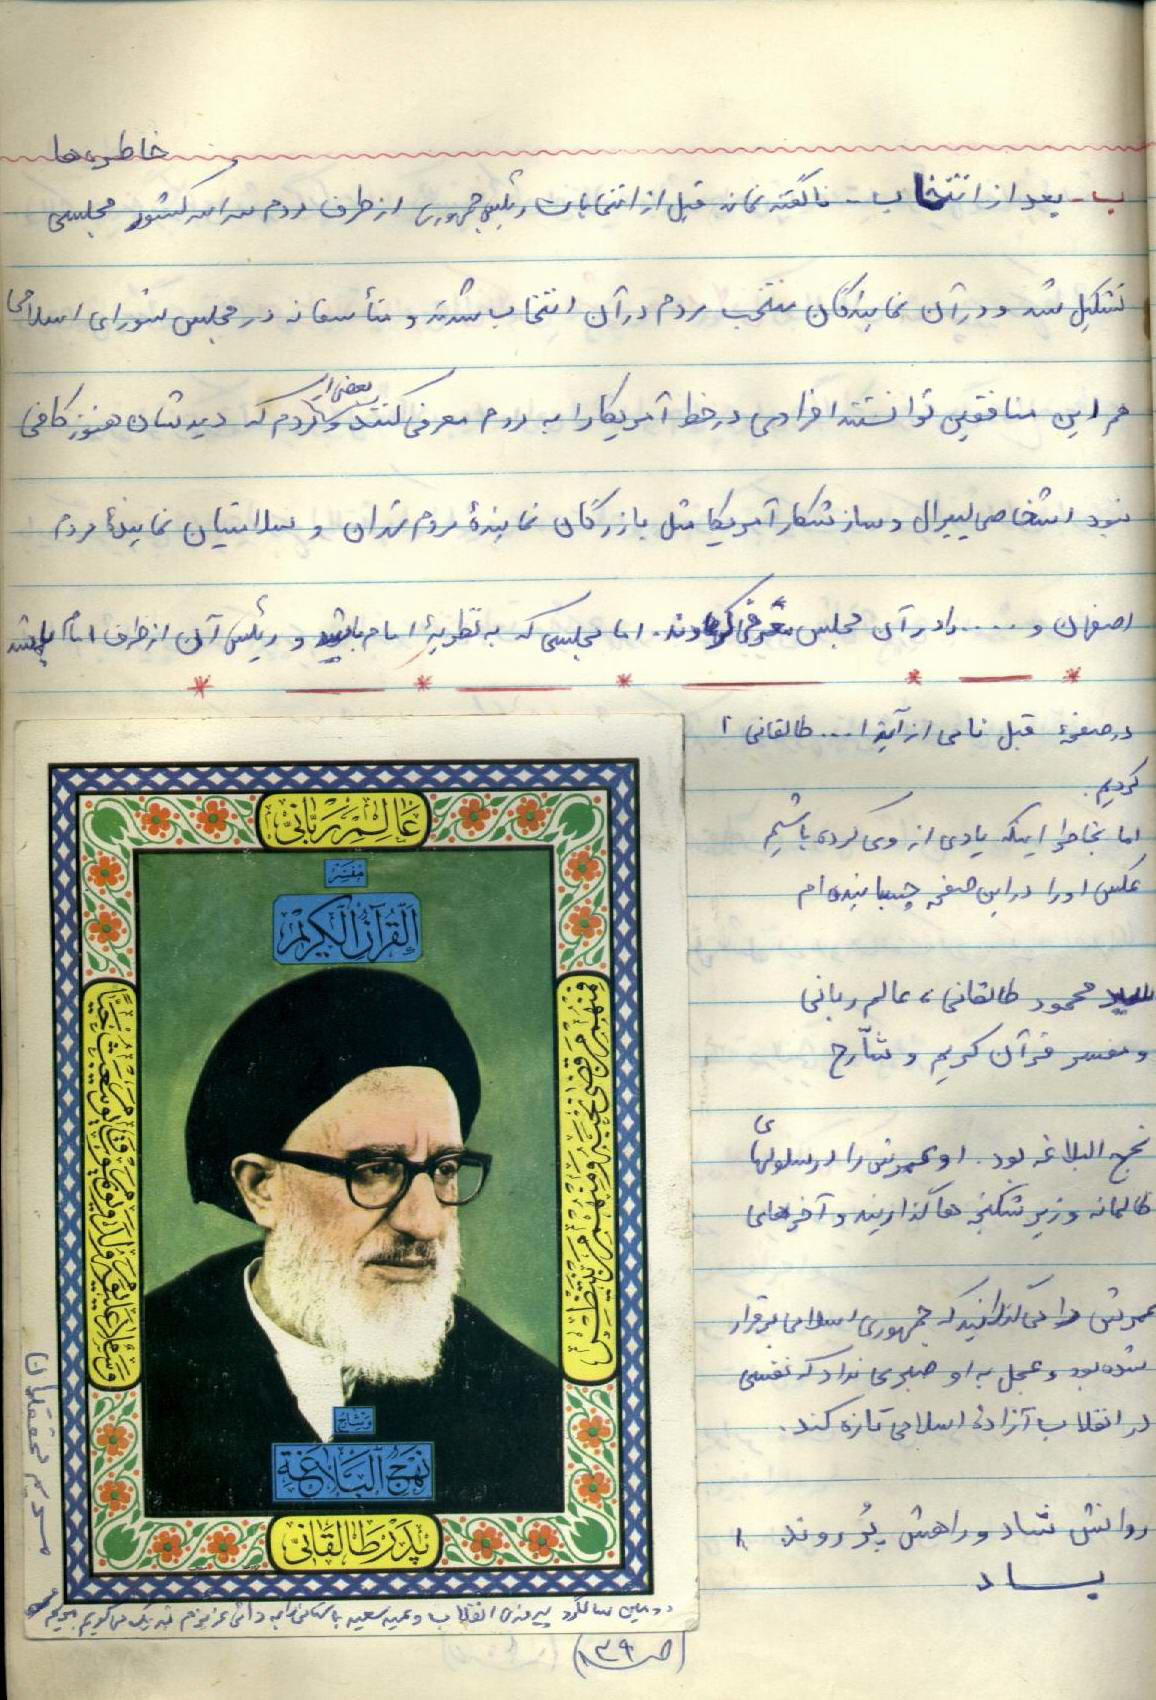 خاطره‌ها
ب - بعد از انتخاب - ناگفته نماند قبل از انتخابات رئیس جمهوری از طرف مردم سراسر کشور مجلسی
تشکیل شد و در آن نمایندگان منتخب مردم در آن انتخاب شدند و متأسفانه در مجلس شورای اسلامی
هم این منافقین توانستند افرادی در خط آمریکا را به مردم معرفی کنند و بعضی از مردم که دیدشان هنوز کافی
نبود اشخاصی لیبرال و سازشکار آمریکا مثل بازرگان نمایندهٔ مردم تهران و سلامتیان نمایندهٔ مردم
اصفهان و .... را در آن مجلس معرفی کردند. اما مجلسی که به نظریهٔ امام باشد و رئیس آن از طرف امام باشد
در صفحهٔ قبل نامی از آیة ا... طالقانی
کردیم.
اما بخاطر اینکه یادی از وی کرده باشیم
عکس او را در این صفحه چسبانیده‌ام
سید محمود طالقانی، عالم ربانی
و مفسر قرآن کریم و شارح
نهج البلاغه بود. او عمرش را در سلولهای
ظالمانه و زیر شکنجه ها گذارنید و آخرهای
عمرش را می‌گذرانید که جمهوری اسلامی برقرار
شده بود و عجل به او صبری نداد که نفسی
در انقلاب آزادهٔ اسلامی تازه کند.
روانش شاد و راهش پُر روند
باد
عَالِمِ رَبّانی
مفسّر
اَلْقُرآنُ الْکَریم
فمنهم من قضی نحبه ومنهم من ینتظر
وسلام علیه یوم ولد و یوم یموت و یوم یبعث حیا
وشارح
نَهجُ البَلاغَة
پدر طالقانی
مریم محققیان
دومین سالگرد پیروزی انقلاب و عید سعید باستانی را به دائی عزیزم تبریک می‌گویم مریم
(ص ۳۹)